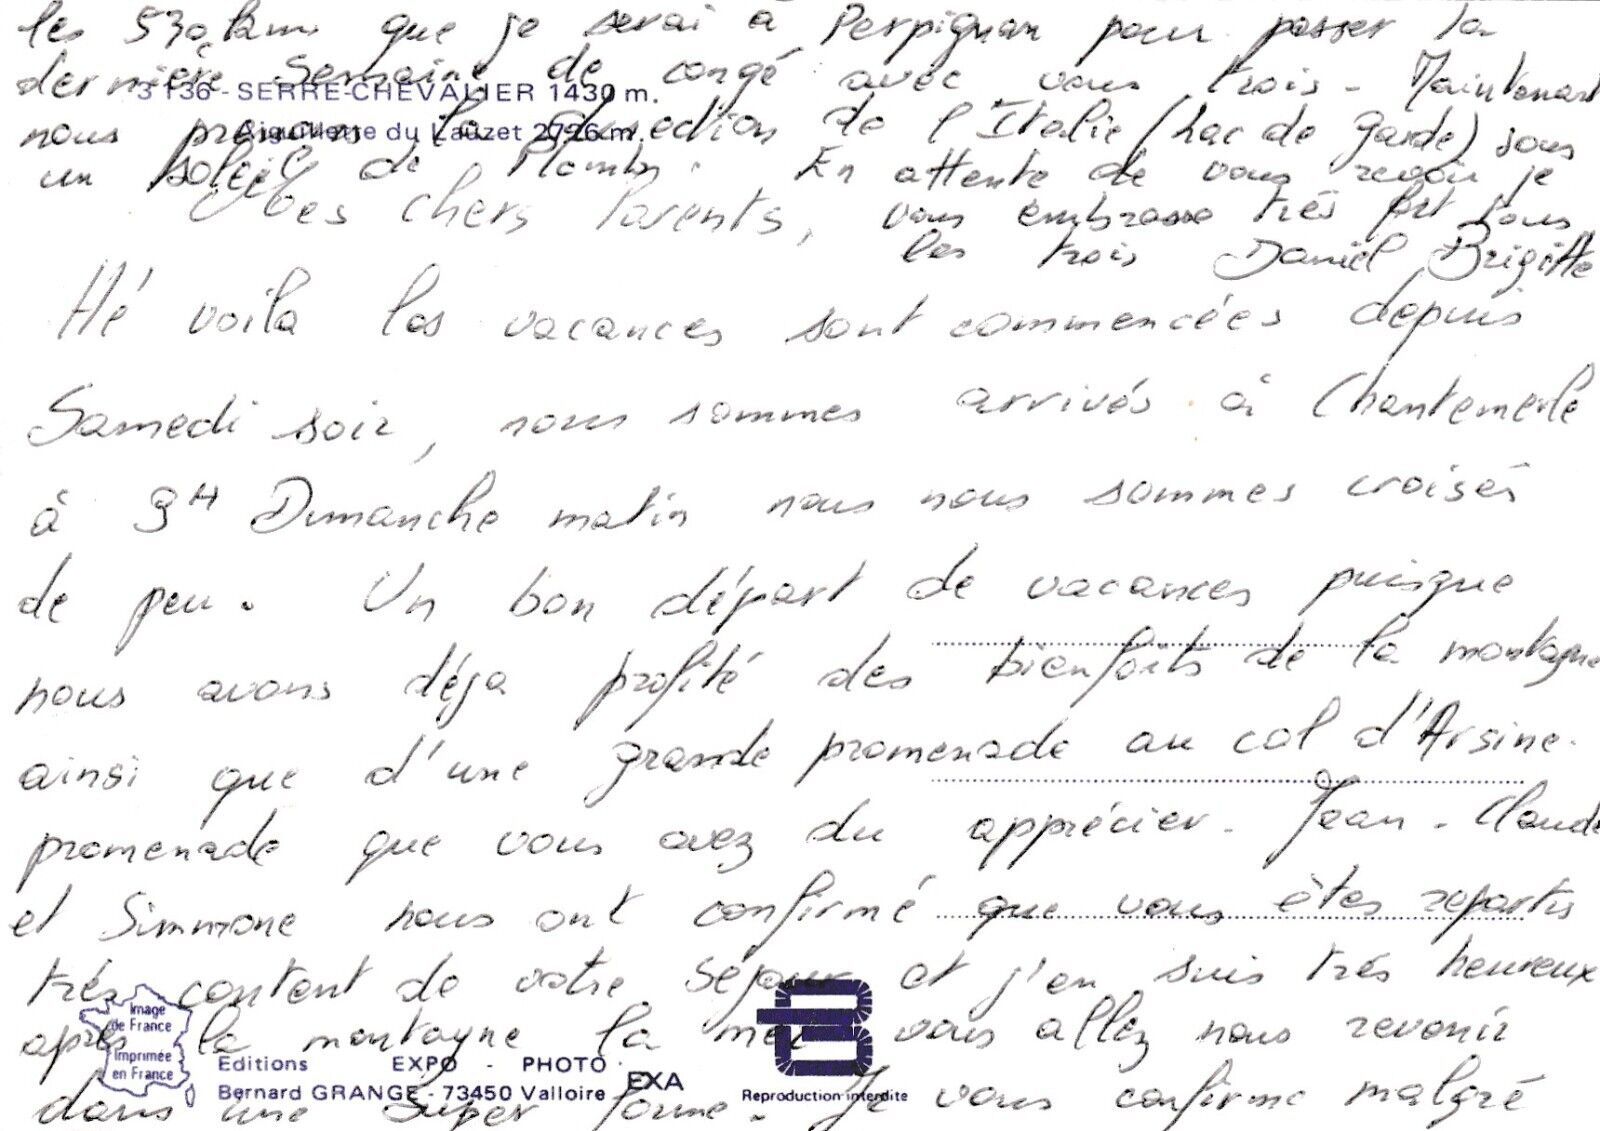 les 530 kms que je serai à Perpignan pour passer la
dernière Semaine de congé avec vous trois - Maintenant
3 136 - SERRE-CHEVALIER 1430 m.
nous prenons la direction de l'Italie (Lac de Garde) sous
Aiguillette du Lauzet 2726 m.
un soleil de Plomb. En attente de vous revoir je
Mes chers Parents, vous embrasse très fort tous
les trois Daniel Brigitte
Hé voila les vacances sont commencées depuis
Samedi soir, nous sommes arrivés à Chantemerle
à 3H Dimanche matin nous nous sommes croisés
de peu. Un bon départ de vacances puisque
nous avons déja profité des bienfaits de la montagne
ainsi que d'une grande promenade au col d'Arsine.
promenade que vous avez du apprécier - Jean-Claude
et Simmone nous ont confirmé que vous êtes repartis
trés content de votre séjour et j'en suis trés heureux
après la montagne la mer vous allez nous revenir
dans une super forme. Je vous confirme malgré
Image
de France
Imprimée
en France
Editions EXPO - PHOTO
Bernard GRANGE - 73450 Valloire
EXA
Reproduction interdite